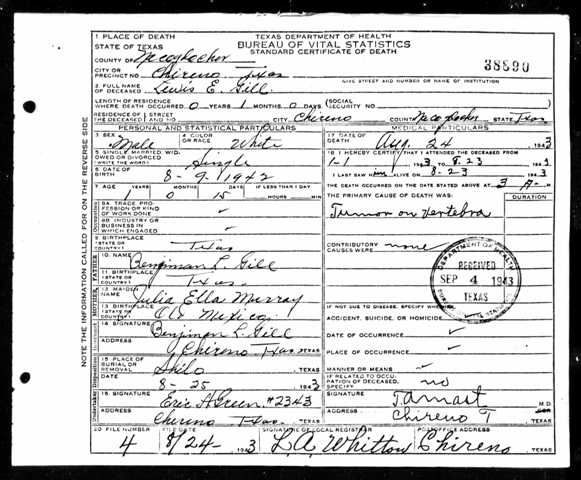 1 PLACE OF DEATH
STATE OF TEXAS
TEXAS DEPARTMENT OF HEALTH
BUREAU OF VITAL STATISTICS
STANDARD CERTIFICATE OF DEATH
COUNTY OF Nacogdoches
38890
CITY OR PRECINCT NO. Chireno Texas
GIVE STREET AND NUMBER OR NAME OF INSTITUTION
2 FULL NAME OF DECEASED Lewis E. Gill
LENGTH OF RESIDENCE WHERE DEATH OCCURRED 0 YEARS 1 MONTHS 0 DAYS
(SOCIAL SECURITY NO.
RESIDENCE OF THE DECEASED STREET AND NO. CITY Chireno COUNTY Nacogdoches STATE Texas
PERSONAL AND STATISTICAL PARTICULARS
3 SEX Male
4 COLOR OR RACE White
5 SINGLE, MARRIED, WIDOWED OR DIVORCED (WRITE THE WORD) Single
6 DATE OF BIRTH 8-9-1942
7 AGE YEARS MONTHS DAYS IF LESS THAN 1 DAY
1 0 15 HOURS MIN
8A TRADE PROFESSION OR KIND OF WORK DONE
8B INDUSTRY OR BUSINESS IN WHICH ENGAGED
9 BIRTHPLACE (STATE OR COUNTRY) Texas
10. NAME Benjiman L. Gill
11 BIRTHPLACE (STATE OR COUNTRY) Texas
12 MAIDEN NAME Julia Ella Murray
13 BIRTHPLACE (STATE OR COUNTRY) Mexico
14 SIGNATURE Benjiman L. Gill
ADDRESS Chireno Texas TEXAS
15 PLACE OF BURIAL OR REMOVAL Shilo TEXAS
DATE 8-25 1943
16 SIGNATURE Eric H Green #2343
ADDRESS Chireno Texas TEXAS
MEDICAL PARTICULARS
17 DATE OF DEATH Aug. 24 1943
18 I HEREBY CERTIFY THAT I ATTENDED THE DECEASED FROM
1-1 1943 TO 8-23 1943
I LAST SAW him ALIVE ON 8-23 1943
THE DEATH OCCURRED ON THE DATE STATED ABOVE AT 3 A. M.
THE PRIMARY CAUSE OF DEATH WAS:
DURATION
Tumor on Vertebra
CONTRIBUTORY CAUSES WERE: none
DEPARTMENT OF HEALTH
RECEIVED
SEP 4 1943
TEXAS
IF NOT DUE TO DISEASE, SPECIFY WHETHER:
ACCIDENT, SUICIDE, OR HOMICIDE
DATE OF OCCURRENCE
PLACE OF OCCURRENCE
MANNER OR MEANS
IF RELATED TO OCCUPATION OF DECEASED, SPECIFY no
SIGNATURE M D
ADDRESS Chireno T TEXAS
20 FILE NUMBER 4
FILE DATE 8/24-1943
SIGNATURE OF LOCAL REGISTRAR L. A. Whitton
POSTOFFICE ADDRESS Chireno TEXAS
NOTE THE INFORMATION CALLED FOR ON THE REVERSE SIDE